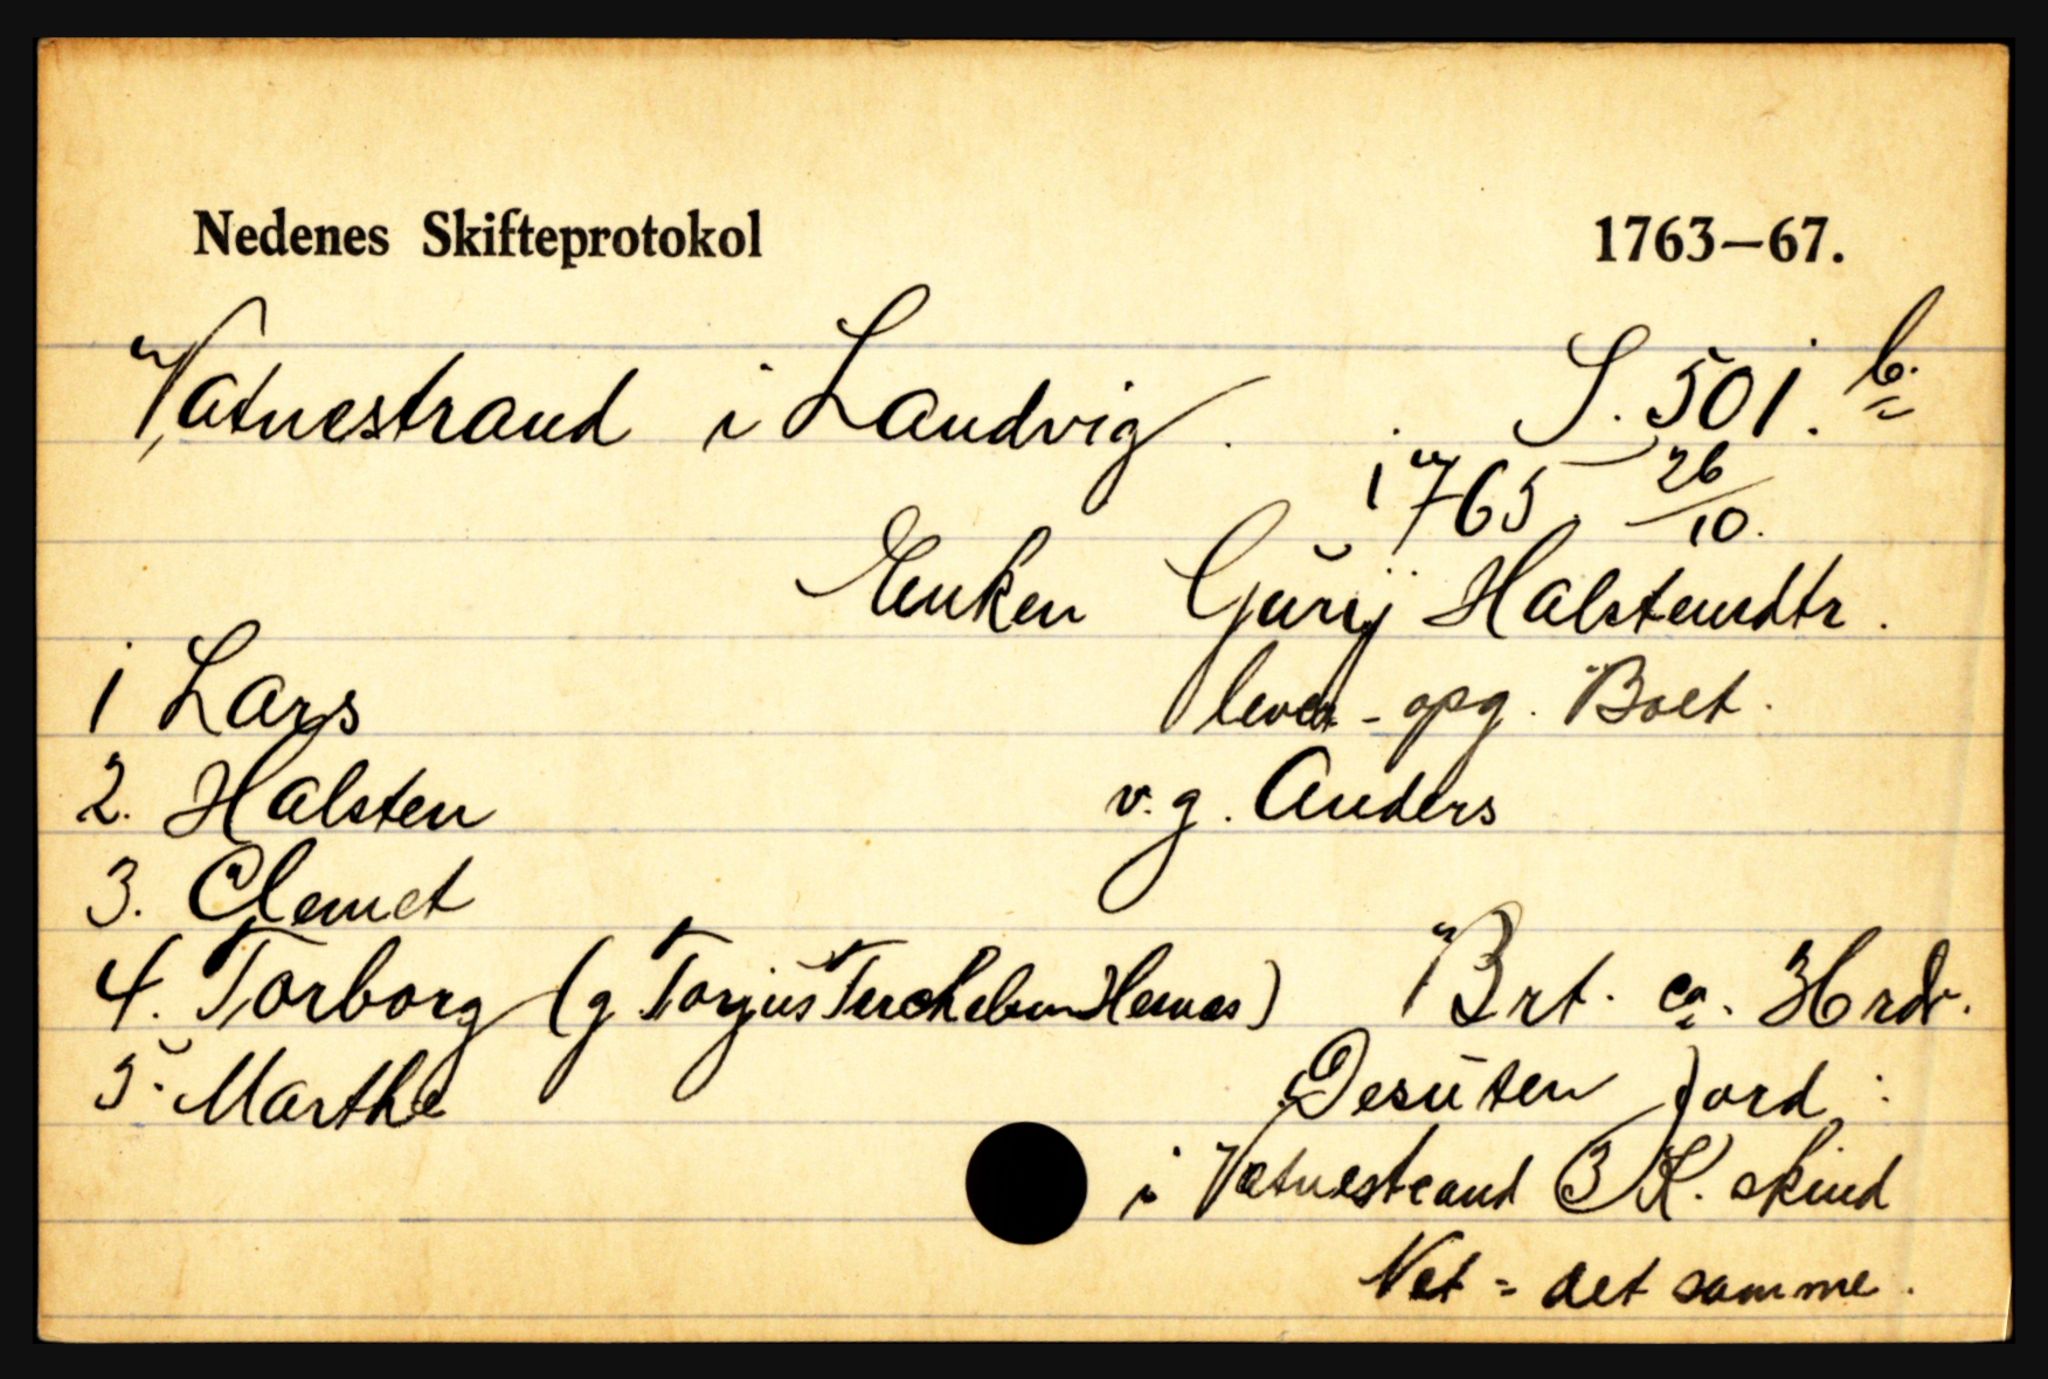 Nedenes Skifteprotokol 1763—67.
Vatnestrand i Landvig. S. 501. b.
1765 26/10.
Enken Gurij Halstensdtr.
1 Lars lever - opg. Boet.
2. Halsten v. g. Anders
3. Clemet
4. Torborg (g Torjus Terchelsen Hemnes) Brt. ca. 3 Hrdr.
5. Marthe Desuten Jord:
i Vatnestrand 3 K. skind
Net = det samme.